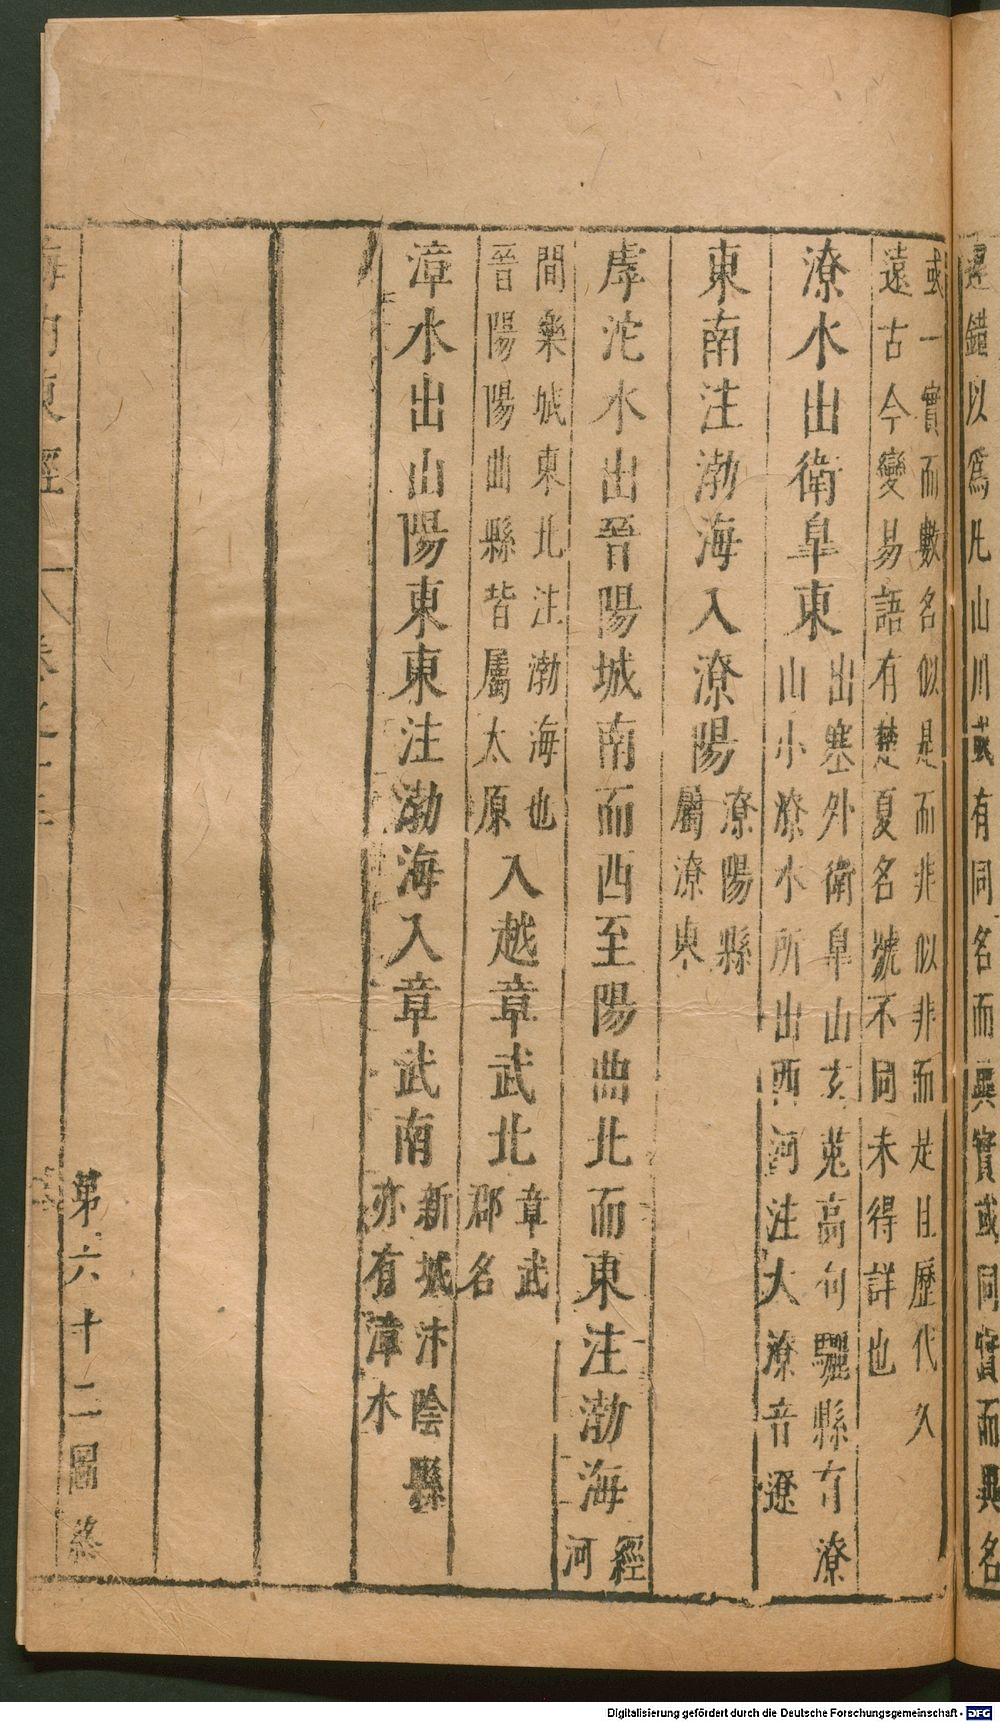 遲錯以爲凡山川或有同名而異實或同實而異名
或一實而數名似是而非似非而是且歷代久
遠古今變易語有楚夏名號不同未得詳也
潦水出衛臯東出塞外衛臯山玄菟高句驪縣有潦
山小潦水所出西河注大潦音遼
東南注渤海入潦陽潦陽縣
屬潦東
虖沱水出晉陽城南而西至陽曲北而東注渤海經
河
間樂城東北注渤海也
晉陽陽曲縣皆屬太原入越章武北章武
郡名
漳水出山陽東東注渤海入章武南新城汴陰縣
亦有漳水
第六十二圖終
海內東經 八卷之十三
Digitalisierung gefördert durch die Deutsche Forschungsgemeinschaft - DFG